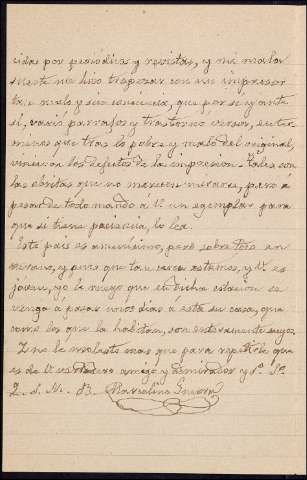 cidas por periódicos y revistas, y mi mala
suerte me hizo tropezar con un impreso
malo y sin conciencia, que por sí y ante
sí, varió parrafos y trastornó versos, de
manera que tras lo pobre y malo del original,
vinieron los defectos de la impresion. Tales son
las obritas que no merecen mirarse, pero á
pesar de todo mando á V. un ejemplar para
que si tiene paciencia, lo lea.
Este pais es amenísimo, pero sobre todo en
verano, y puesto que tan cerca estamos, y V. es
jóven, yo le ruego que en dicha estacion se
venga á pasar unos dias á esta su casa, que
como los que la habitan, son enteramente suyos.
I no le molesto mas que para repetirle que
es de V. verdadero amigo y admirador y s. S.
Q. S. M. B. Marcelino